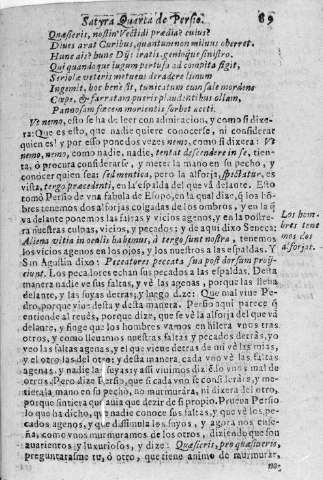 Satyra Quarta de Persio. 89
Quæsieris, nostin' Vectidi prædia? cuius?
Diues arat Curibus, quantum non miluus oberret.
Hunc ais? hunc Dijs iratis, genioque sinistro.
Qui quandoque iugum pertusa ad compita figit,
Seriolæ veterem metuens deradere limum
Ingemit, hoc bene sit, tunicatum cum sale mordens
Cæpe, & farratam pueris plaudentibus ollam,
Pannosam fæcem morientis sorbet aceti.
Vt nemo, esto se ha de leer con admiracion, y como si dixe-
ra: Que es esto, que nadie quiere conocerse, ni considerar
quien es? y por esso ponedos vezes nemo, como si dixera: Vt
nemo, nemo, como nadie, nadie, tentat descendere in se, tien-
ta, ò procura considerarse, y meter la mano en su pecho, y
conocer quien sea: sed mentica, pero la alforja, spectatur, es
vista, tergo præcedenti, en la espalda del que và delante. Esto
tomò Persio de vna fabula de Esopo, en la qual dize, q̃ los hõ
bres tenemos dos alforjas colgadas de los ombros, y en la q̃
va delante ponemos las faltas y vicios agenos, y en la postre-
ra nuestras culpas, vicios, y pecados; y de aqui dixo Seneca:
Aliena vitia in oculis habemus, à tergo sunt nostra, tenemos
los vicios agenos en los ojos, y los nuestros a las espaldas. Y
San Agustin dixo: Peccatores peccata sua post dorsum proij-
ciunt. Los pecadores echan sus pecados a las espaldas. Desta
manera nadie ve sus faltas, y vè las agenas, porque las lleua
delante, y las suyas detras; y luego dize: Que mal viue Pe-
dro, porque vio: delta y desta manera. Persio aqui parece q̃
entiende al reuès, porque dize, que se vè la alforja del que và
delante, y finge que los hombres vamos en hilera vnos tras
otros, y como lleuamos nuestras faltas y pecados detràs, yo
veo las faltas agenas, y el que viene detras de mi vè las mias,
y el otro las del otro; y desta manera cada vno vè las faltas
agenas, y nadie las suyas; y assi viuimos diziẽdo vnos mal de
otros. Pero dize Persio, que si cada vno se considerára, y me-
tiera la mano en su pecho, no murmurára, ni dixera del otro,
porque sintiera que auia que dezir de si proprio. Prueua Persio
lo que ha dicho, que nadie conoce sus faltas, y que vè los pe-
cados agenos, y que dissimula los suyos, y agora nos ense-
ña, como vnos murmuramos de los otros, diziendo que son
auarientos, y luxuriosos, y dize: Quæsieris, pro quæsiueris,
preguntarasme tu, ò otro, que tiene animo de murmurar,
Los hom-
bres tene
mos dos
alforjas.